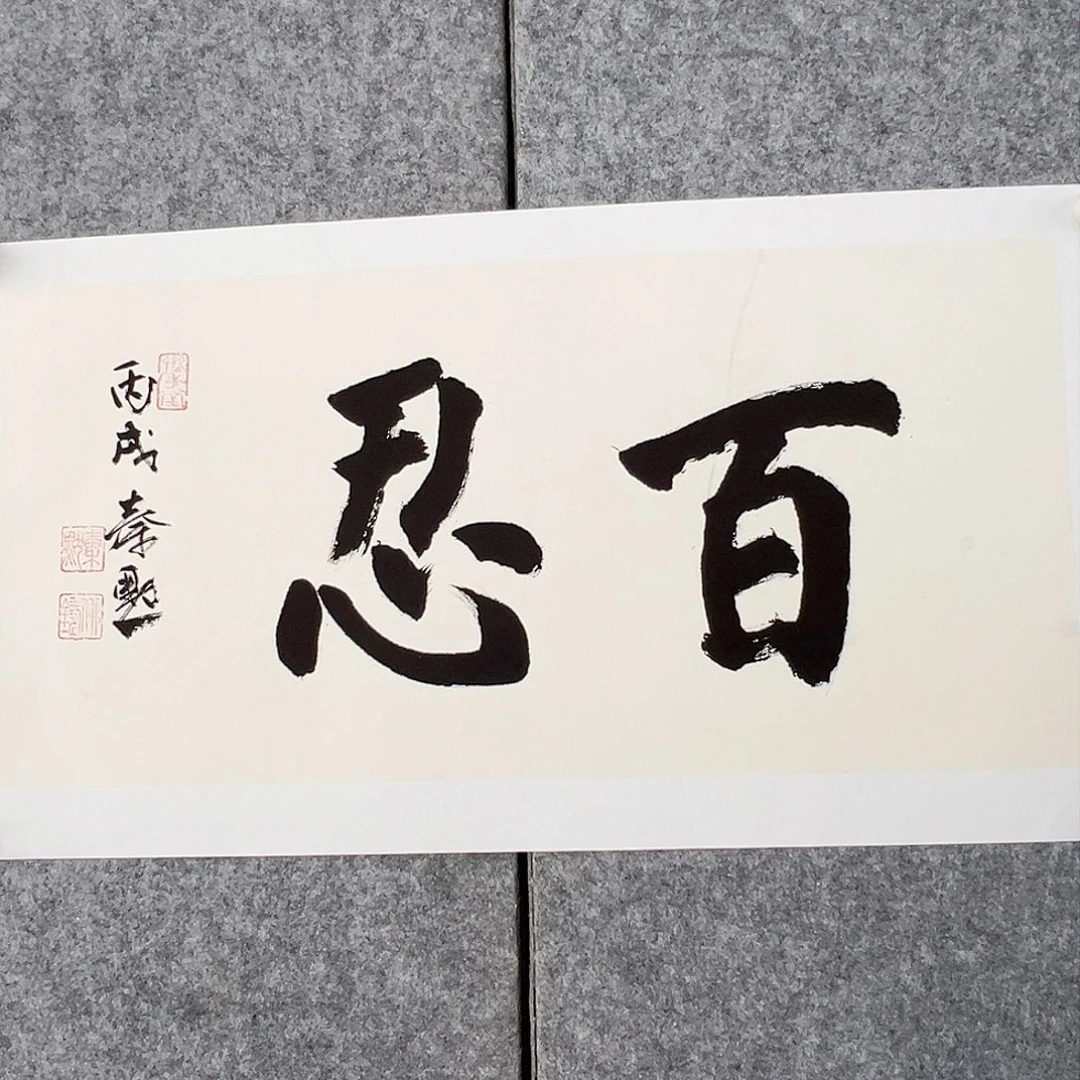 百忍
丙戌秦